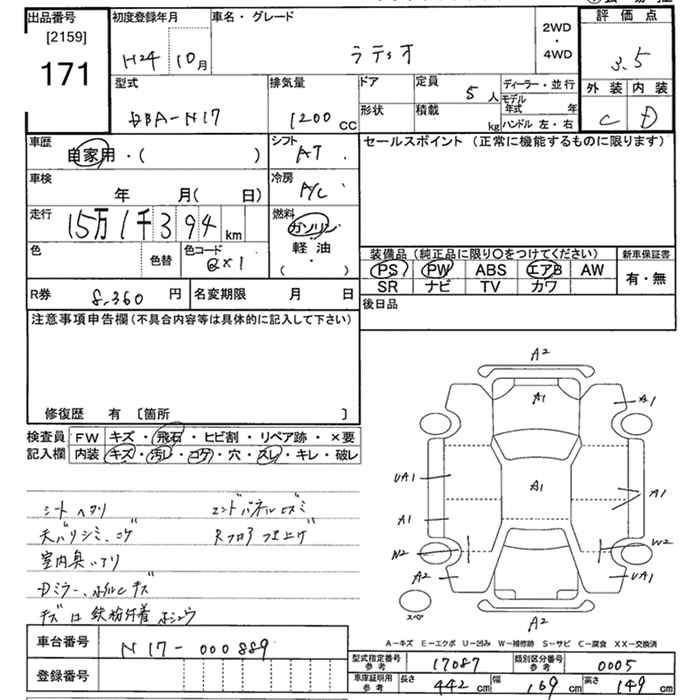 出品番号
[2159]
171
初度登録年月
H24 10月
車名・グレード
ラティオ
2WD
・
4WD
評価点
3.5
外装 内装
C D
型式
DBA-N17
排気量
1200cc
ドア
形状
定員 5人
積載 kg
ディーラー・並行
モデル年式 年
ハンドル 左・右
車歴 自家用・( )
シフト AT
車検 年 月( 日)
冷房 A/C
走行 15万1千394km
燃料 ガソリン
軽油
・
( )
色 色替 色コード QX1
R券 8,360円 名変期限 月 日
セールスポイント (正常に機能するものに限ります)
装備品 (純正品に限り○をつけてください) 新車保証書
PS PW ABS エアB AW 有・無
SR ナビ TV カワ
後日品
注意事項申告欄(不具合内容等は具体的に記入して下さい)
修復歴 有 [箇所 ]
検査員記入欄
FW キズ・飛石・ヒビ割・リペア跡・×要
内装 キズ・汚レ・コゲ・穴・スレ・キレ・破レ
シートヘタリ エンドパネルズミ
天バリシミ、コゲ Rフロア
室内臭いアリ
Dミラー、ホイルキズ
キズ
A2
A1
A1
UA1
A1
A1
A1
W2
W2
A2
UA1
A2
スペア
A-キズ E-エクボ U-凹み W-補修跡 S-サビ C-腐食 XX-交換済
車台番号 N17-000889
登録番号
型式指定番号 参考 17087 類別区分番号 参考 0005
車庫証明用 参考 長さ 442cm 幅 169cm 高さ 149cm